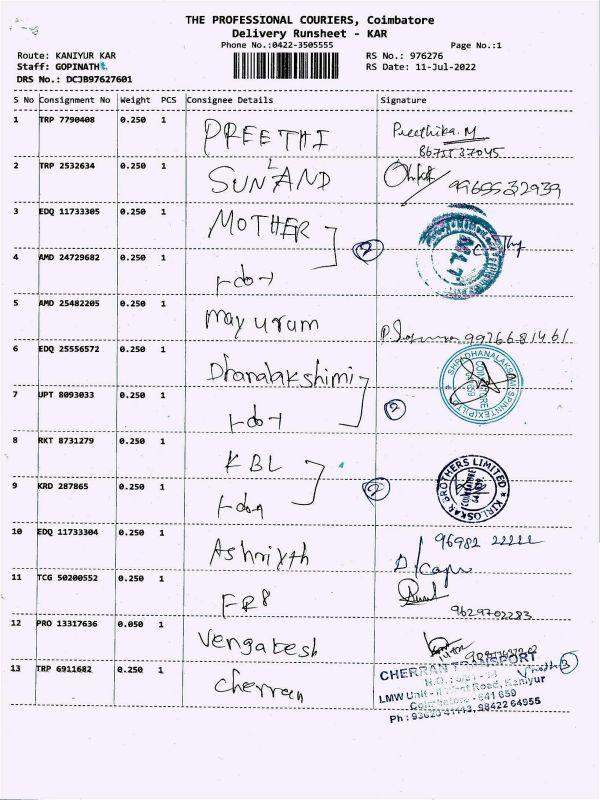 THE PROFESSIONAL COURIERS, Coimbatore
Delivery Runsheet - KAR
Phone No.:0422-3505555 Page No.:1
Route: KANIYUR KAR RS No.: 976276
Staff: GOPINATH RS Date: 11-Jul-2022
DRS No.: DCJB97627601
S No Consignment No Weight PCS Consignee Details Signature
1 TRP 7790408 0.250 1 PREETHI Preethika.M
2 TRP 2532634 0.250 1 SUN LAND 9969532939
3 EDQ 11733305 0.250 1 MOTHER
4 AMD 24729682 0.250 1 -do- 2
MLT
5 AMD 25482205 0.250 1 mayuram
6 EDQ 25556572 0.250 1 Dhanalakshimi
SHRI DHANALAKSHMI SPINNTEX (P) LTD
COIMBATORE
7 UPT 8093033 0.250 1 -do- 2
8 RKT 8731279 0.250 1 KBL
KIRLOSKAR BROTHERS LIMITED
COIMBATORE
9 KRD 287865 0.250 1 -do- 2
10 EDQ 11733304 0.250 1 96982 22222
11 TCG 50200552 0.250 1 FR8 9629702283
12 PRO 13317636 0.050 1 Vengatesh
13 TRP 6911682 0.250 1 cherran 3
CHERRAN TRANSPORT
LMW Unit - II West Road, Kaniyur
Coimbatore - 641 659
98422 64955